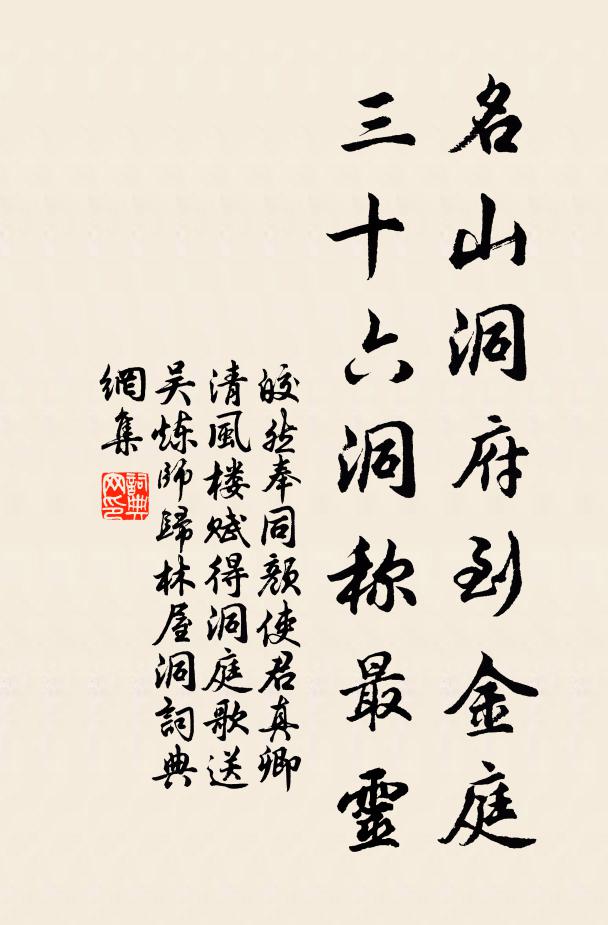 名山洞府到金庭
三十六洞称最靈
皎然奉同颜使君真卿
清風楼赋得洞庭歌送
吴炼师歸林屋洞詞典
網集
詞典网印